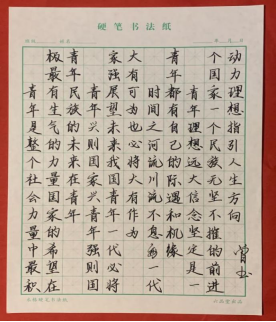 硬笔书法纸
青年是整个社会力量中最积
极最有生气的力量国家的希望在
青年民族的未来在青年
青年兴则国家兴青年强则国
家强展望未来我国青年一代必将
大有可为也必将大有作为
时间之河流川流不息每一代
青年都有自己的际遇和机缘
青年理想远大信念坚定是一
个国家一个民族无坚不摧的前进
动力理想指引人生方向